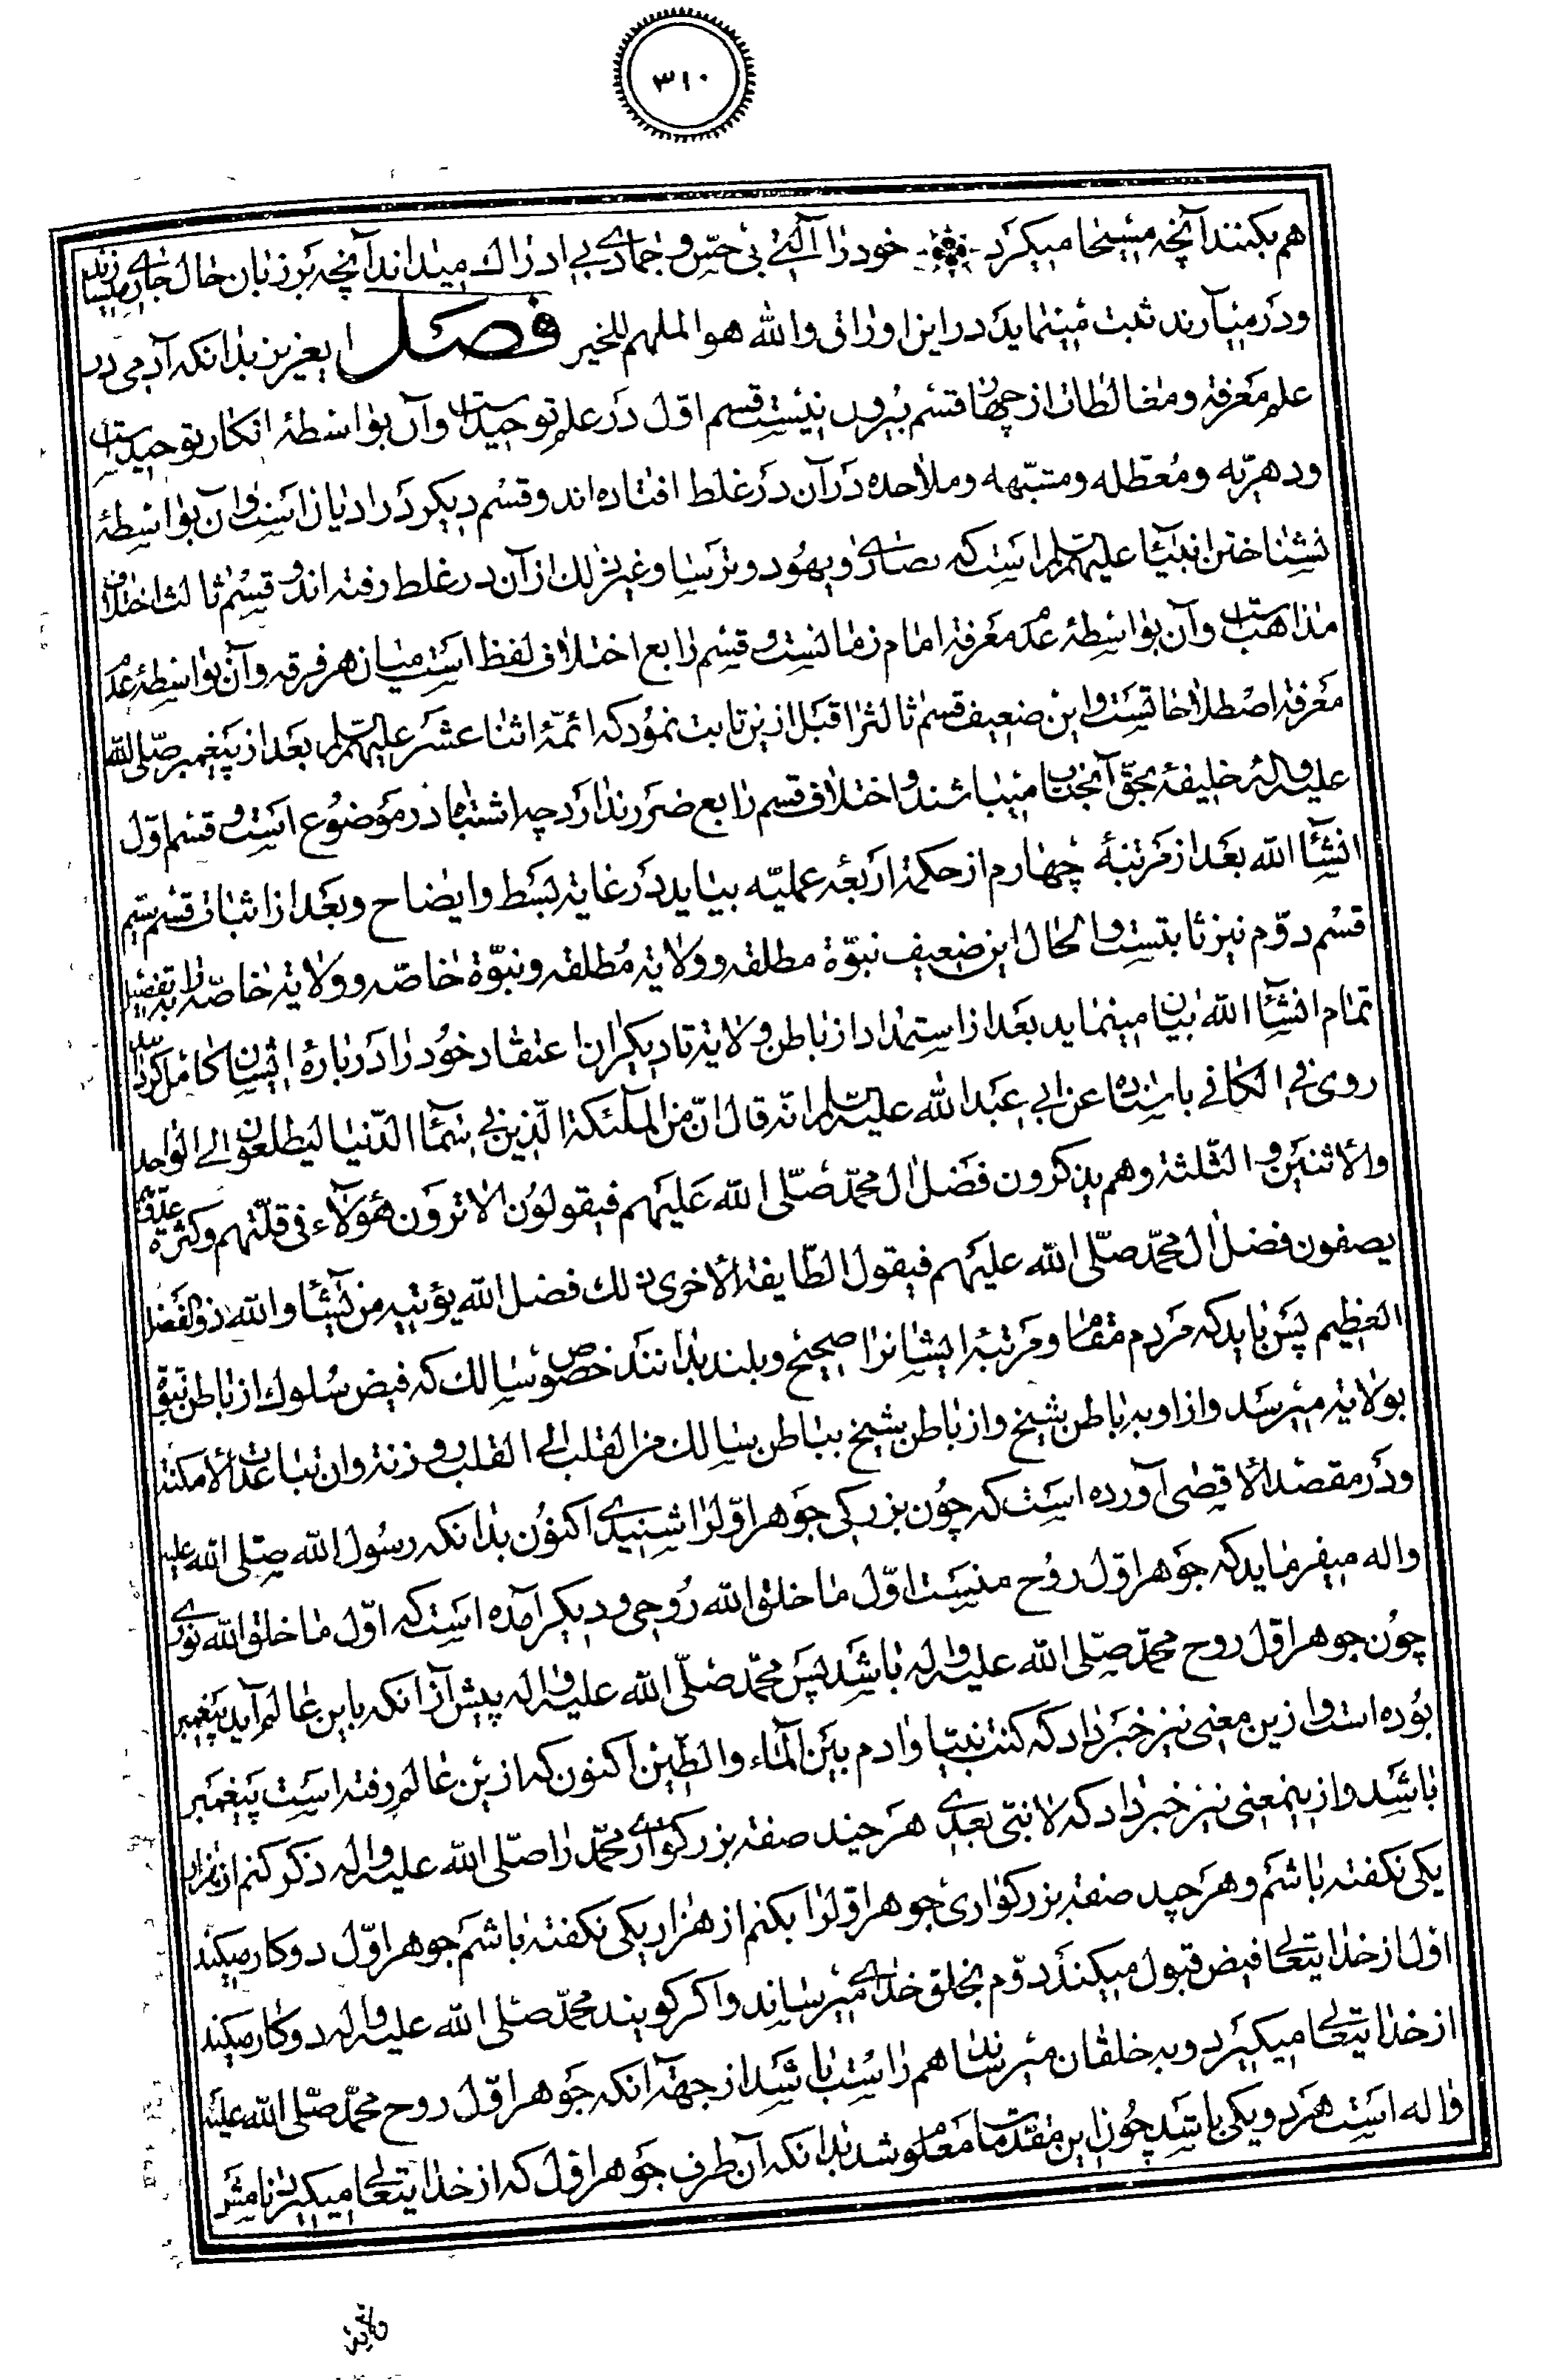 ٣١٠
هم بکنند آنچه مسیحا میکرد خود را آلتی بی حس و جمادی بی ادراك میداند آنچه بر زبان حال جاری میسازند
و در میآرند ثبت مینماید در این اوراق والله هو الملهم للخیر فصل ایعزیز بدانکه آدمی در
علم معرفة و مغالطات از چهار قسم بیرون نیست قسم اوّل در علم توحید است و آن بواسطهٔ انکار توحید است
و دهریّه و معطّله و مشبّهه و ملاحده در آن در غلط افتاده اند و قسم دیکر در ادیان است و آن بواسطهٔ
نشناختن انبیآء علیهم السلام است که نصاری و یهود و ترسا و غیر ذلك از آن در غلط رفته اند و قسم ثالث اختلاف
مذاهب است و آن بواسطهٔ عدم معرفة امام زمانست و قسم رابع اختلاف لفظ است میان هر فرقه و آن بواسطهٔ عدم
معرفة اصطلاحاتست و این ضعیف قسم ثالث را قبل ازین ثابت نمود که ائمّهٔ اثنا عشر علیهم السلام بعد از پیغمبر صلّی الله
علیه و اله خلیفهٔ بحقّ آنجناب میباشند و اختلاف قسم رابع ضرر ندارد چه اشتباه در موضوع است و قسم اوّل
انشآء الله بعد از مرتبهٔ چهارم از حکمة اربعهٔ عملیّه بیاید در غایة بسط و ایضاح و بعد از اثبات قسم سیّم
قسم دوّم نیز ثابتست و الحال این ضعیف نبوّة مطلقه و ولایة مطلقه و نبوّة خاصّه و ولایة خاصّه را به تفصیل
تمام انشآء الله بیان مینماید بعد از استمداد از باطن ولایة تا دیکران اعتقاد خود را در بارهٔ ایشان کامل کردانند
روی فی الکافی باسناده عن ابی عبد الله علیه السلام انّه قال انّ من الملئکة الّذین فی سمآء الدّنیا لیطلعون الی الواحد
والاثنین و الثّلثة وهم یذکرون فضل ال محمّد صلّی الله علیهم فیقولون الا ترون هؤلآء فی قلّتهم و کثرة عدوّهم
یصفون فضل ال محمّد صلّی الله علیهم فیقول الطّایفة الاخری ذلك فضل الله یؤتیه من یشآء والله ذو الفضل
العظیم پس باید که مردم مقام و مرتبهٔ ایشانرا صحیح و بلند بدانند خصوص سالك که فیض سلوك از باطن نبوّة
بولایة میرسد و از او به باطن شیخ و از باطن شیخ بباطن سالك من القلب الی القلب روزنة وان تباعدت الامکنة
و در مقصد الاقصی آورده است که چون بزرکی جوهر اوّل را شنیدی اکنون بدانکه رسول الله صلّی الله علیه
و اله میفرماید که جوهر اوّل روح منست اوّل ما خلق الله روحی و دیکر آمده است که اوّل ما خلق الله نوری
چون جوهر اوّل روح محمّد صلّی الله علیه و اله باشد پس محمّد صلّی الله علیه و اله پیش از آنکه باین عالم آید پیغمبر
بوده است و ازین معنی نیز خبر داد که کنت نبیّا و ادم بین المآء والطّین اکنون که ازین عالم رفته است پیغمبر
باشد و از ینمعنی نیز خبر داد که لا نبیّ بعدی هر چند صفة بزرکواری محمّد را صلّی الله علیه و اله ذکر کنم از هزار
یکی نکفته باشم و هر چند صفة بزرکواری جوهر اوّل را بکنم از هزار یکی نکفته باشم جوهر اوّل دو کار میکند
اوّل از خدایتعالی فیض قبول میکند دوّم بخلق خدای میرساند و اکر کویند محمّد صلّی الله علیه و اله دو کار میکند
از خدایتعالی میکیرد و به خلقان میرساند هم راست باشد از جهة آنکه جوهر اوّل روح محمّد صلّی الله علیه
و اله است هر دو یکی باشد چون این مقدّمات معلوم شد بدانکه آن طرف جوهر اوّل که از خدایتعالی میکیرد نامش
ولایة